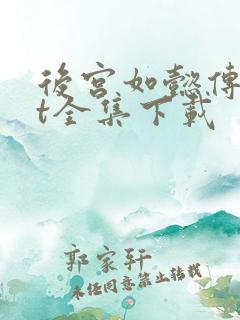 後宮如懿傳
t全集下載
郭家轩
未经同意禁止转载